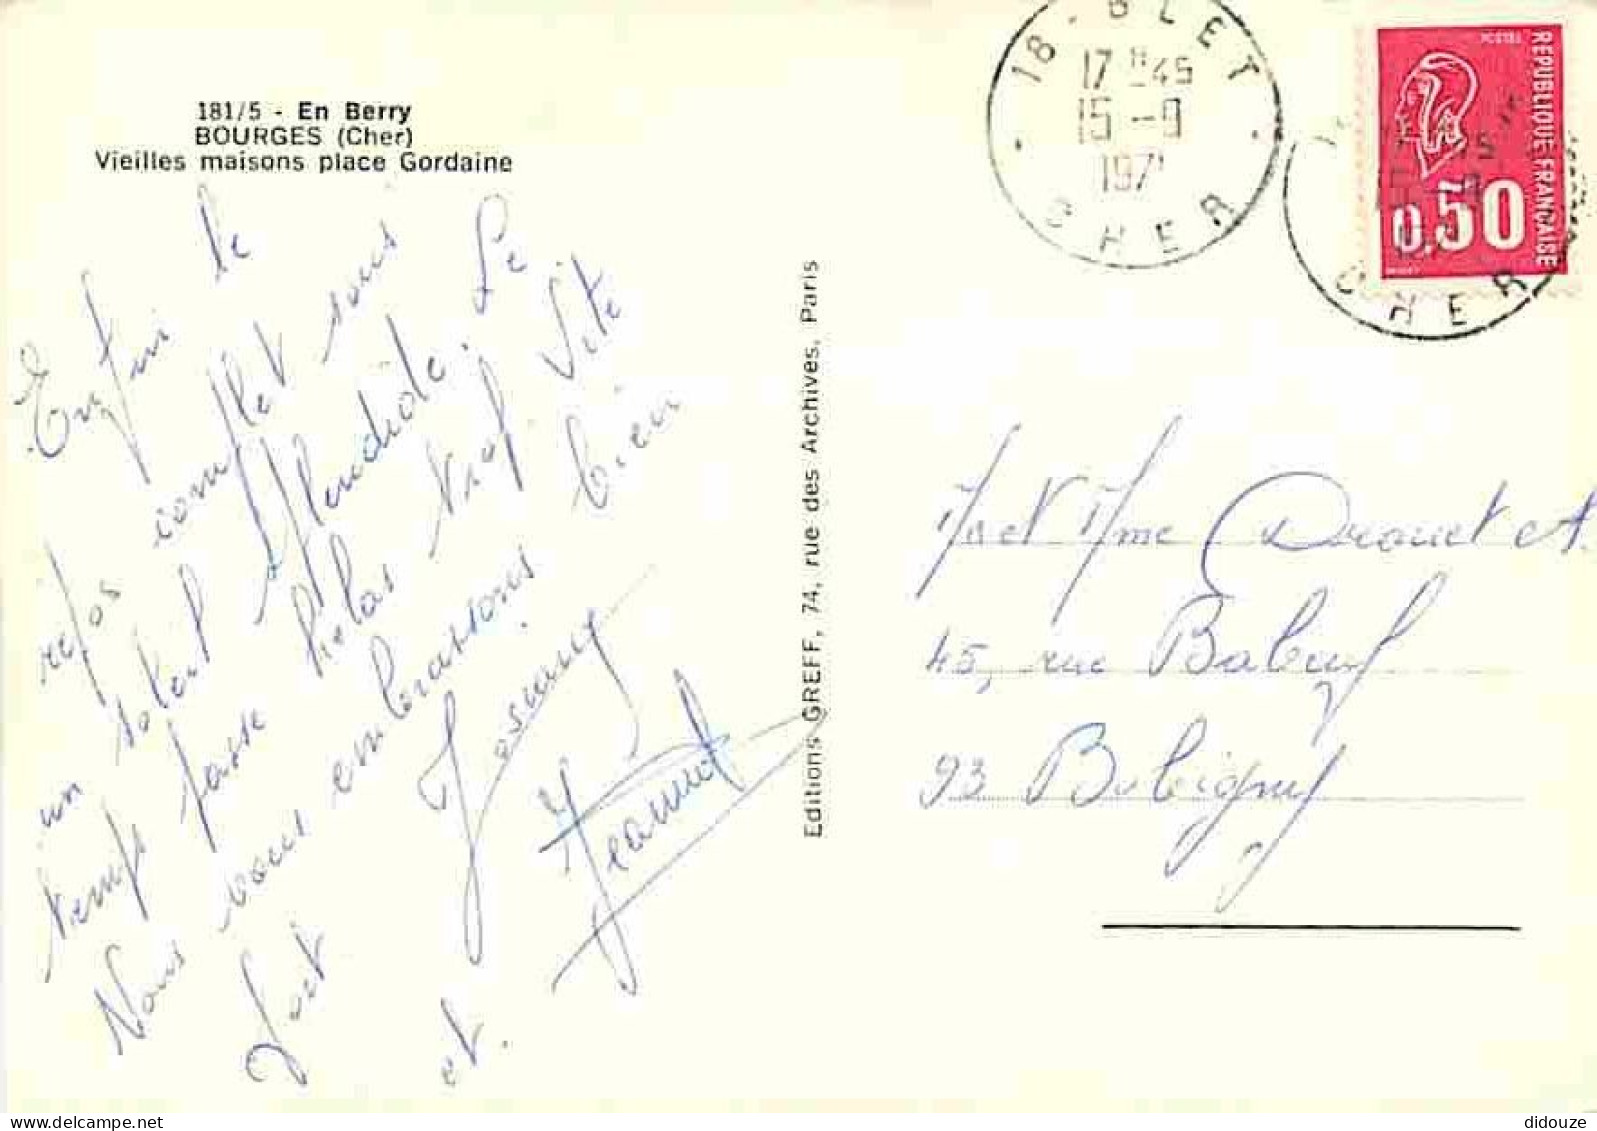 181/5 - En Berry
BOURGES (Cher)
Vieilles maisons place Gordaine
Enfin le
repos complet sous
un soleil splendide. Le
temps passe hélas trop vite
Nous vous embrassons bien
fort
Josiany
et. Jeannot
Editions GREFF, 74, rue des Archives, Paris
18 - BLET
17H45
15 - 9
197
CHER
CHER
REPUBLIQUE FRANÇAISE
0,50
Mr et Mme Drouet A.
45, rue Babeuf
93 Bobigny
didouze